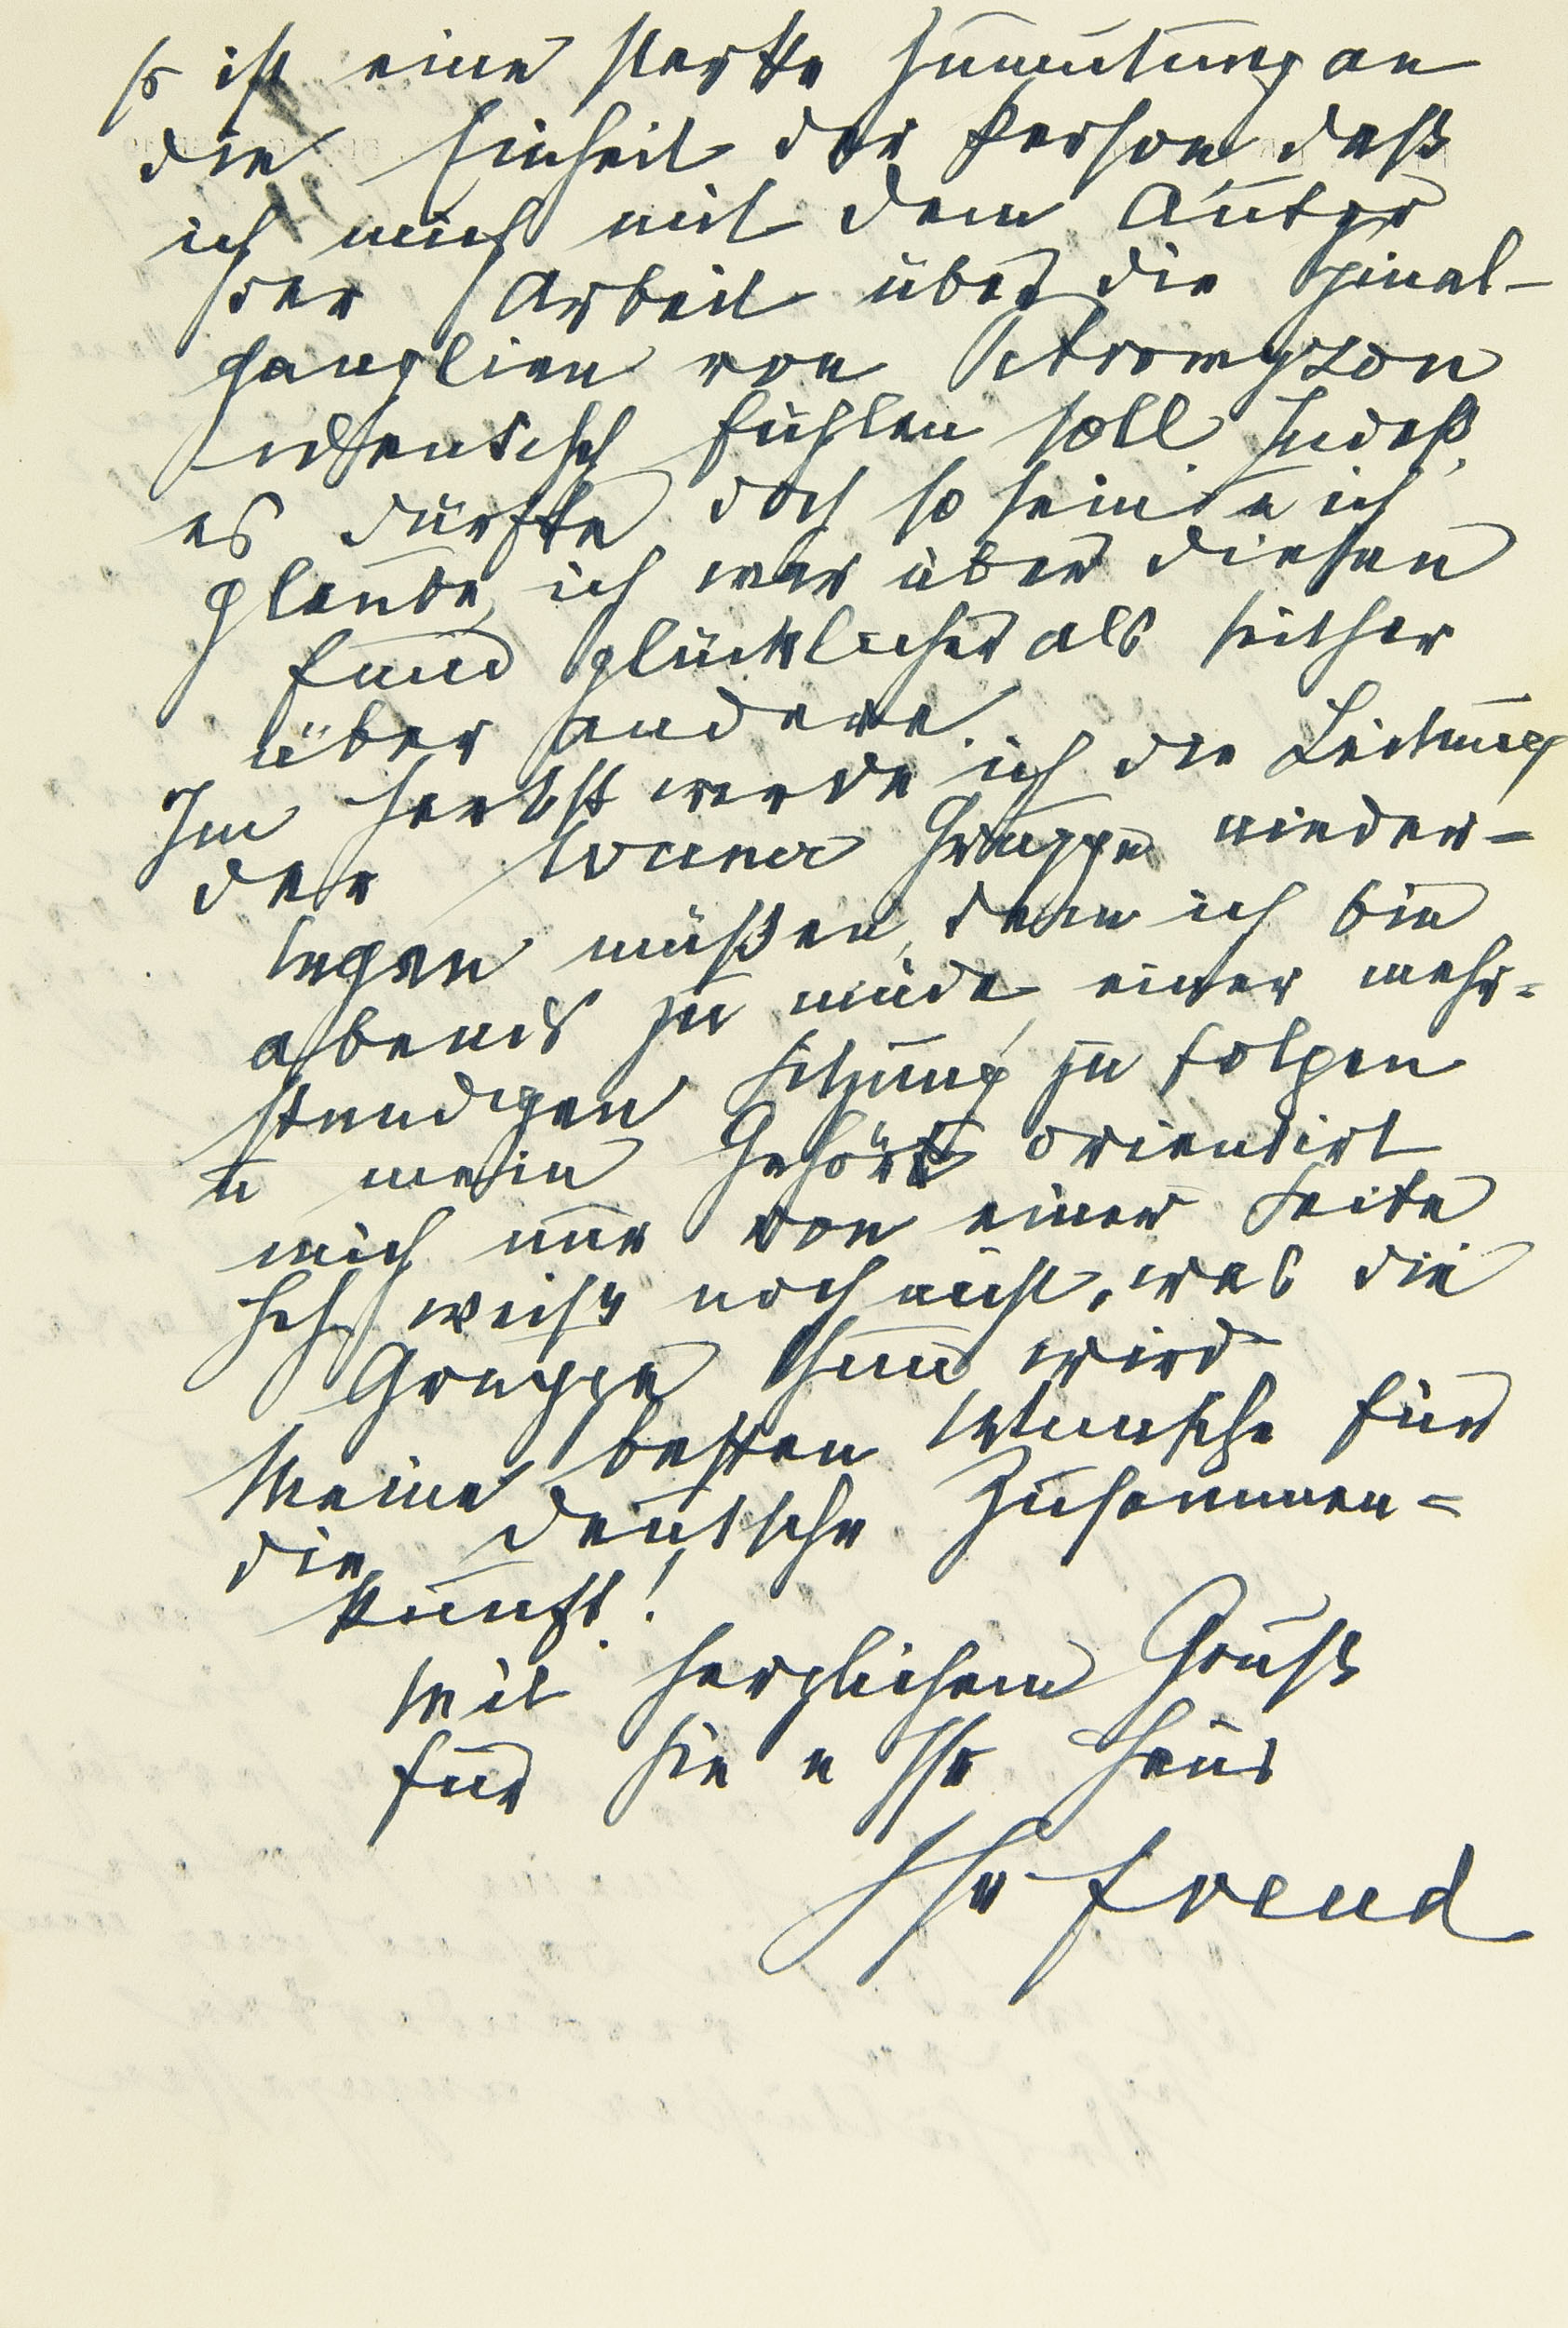 Es ist eine starke Zumutung an
die Einheit der Person daß
ich mich mit dem Autor
der Arbeit über die Spinal-
ganglien von Petromyzon
identisch fühlen soll. Indeß,
es dürfte doch so sein u ich
glaube, ich war über diesen
Fund glücklicher als seither
über andere.
Im Herbst werde ich die Leitung
der Wiener Gruppe nieder-
legen müßen, denn ich bin
abends zu müde einer mehr-
stundigen Sitzung zu folgen
u mein Gehör orientirt
mich nur von einer Seite
Ich weiß noch nicht, was die
Gruppe thun wird
Meine besten Wunsche für
die deutsche Zusammen-
kunft!
Mit herzlichem Gruß
für Sie u Ihr Haus
Ihr Freud